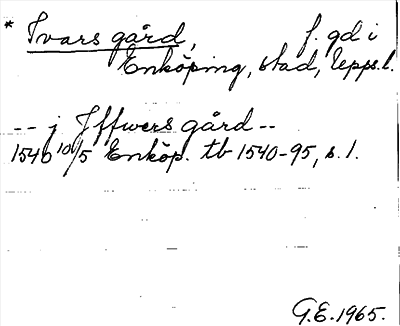 * Ivars gård, f. gd i
Enköping, stad, Upps. l.
-- j Iffwers gård --
1540 10/5 Enköp. tb 1540-95, s. 1.
G.E. 1965.